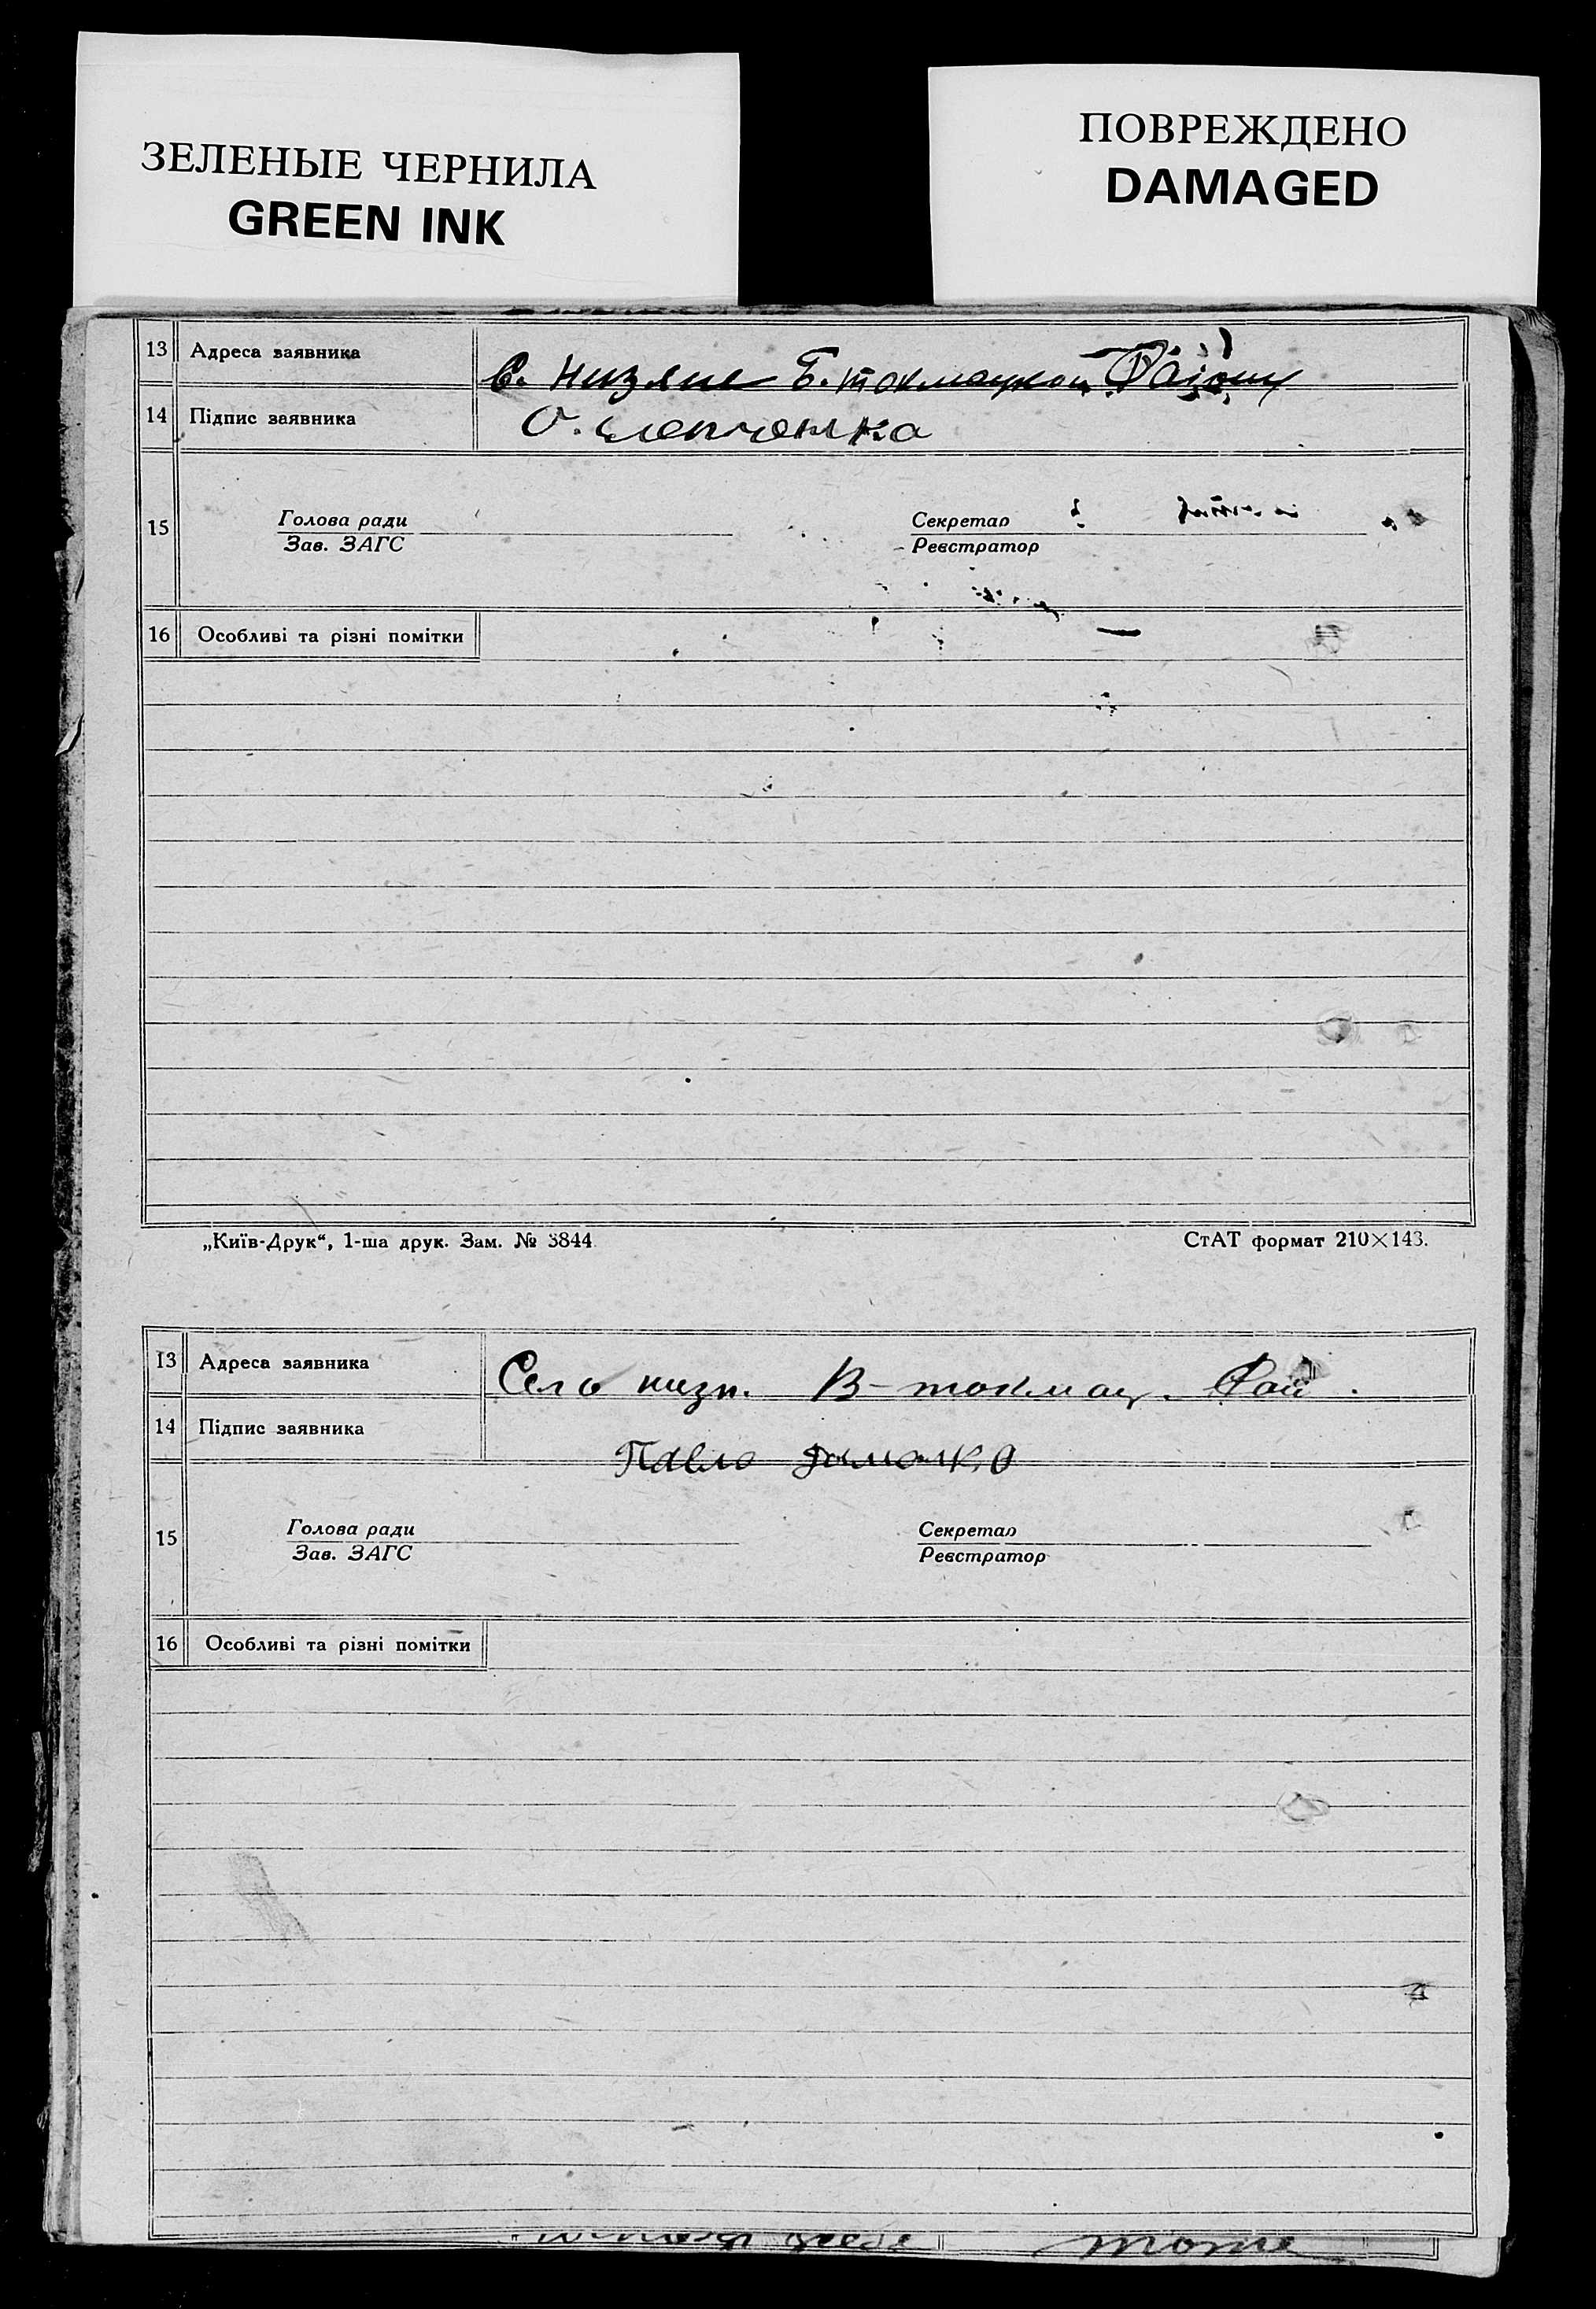 ЗЕЛЕНЫЕ ЧЕРНИЛА
GREEN INK
ПОВРЕЖДЕНО
DAMAGED
13 Адреса заявника
с. Низяне Б. токмацкои Району
14 Підпис заявника
О.
15 Голова ради
Зав. ЗАГС
Секретар
Реєстратор
16 Особливі та різні помітки
„Київ-Друк“, 1-ша друк. Зам. № 3844
СтАТ формат 210×143.
13 Адреса заявника
Село низн. В-токмац. Рай.
14 Підпис заявника
Павло
15 Голова ради
Зав. ЗАГС
Секретар
Реєстратор
16 Особливі та різні помітки